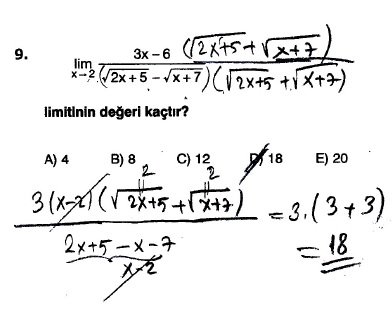 9. lim x→2 3x – 6 (√2x+5 + √x+7) / (√2x + 5 – √x + 7) (√2x+5 + √x+7)
limitinin değeri kaçtır?
A) 4 B) 8 C) 12 D) 18 E) 20
2 2
3(x-2) (√2x+5 + √x+7) / 2x+5 - x - 7 = 3.(3+3)
x-2 = 18